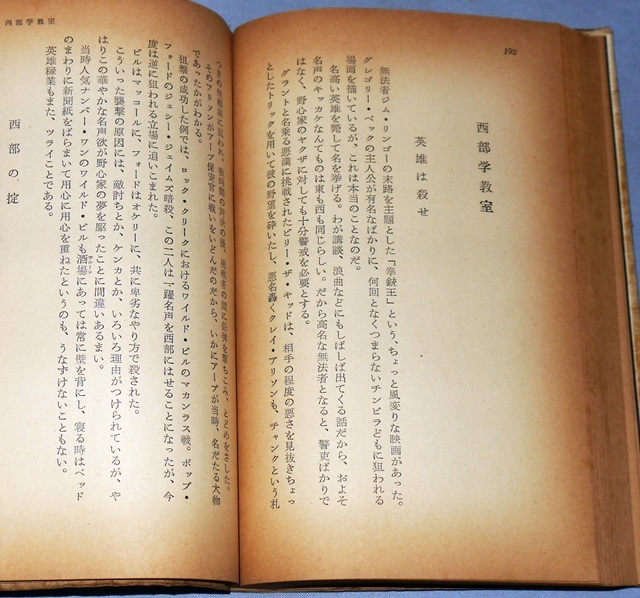 西部学教室
英雄は殺せ
無法者ジム・リンゴーの末路を主題とした「拳銃王」という、ちょっと風変りな映画があった。
グレゴリー・ペックの主人公が有名なばかりに、何回となくつまらないチンピラどもに狙われる
場面を描いているが、これは本当のことなのだ。
名高い英雄を斃して名を挙げる。わが講談、浪曲などにもしばしば出てくる話だから、およそ
名声のキッカケなんてものは東も西も同じらしい。だから高名な無法者となると、警吏ばかりで
はなく、野心家のヤクザに対しても十分警戒を必要とする。
グラントと名乗る悪漢に挑戦されたビリー・ザ・キッドは、相手の程度の悪さを見抜きちょっ
としたトリックを用いて彼の野望を砕いたし、悪名轟くクレイ・アリソンも、チャンクという札
西部学教室
そのアリソンがアープ保安官に戦いをいどんだのだから、いかにアープが当時、名だたる大物
であったかがわかる。
狙撃の成功した例では、ロック・クリークにおけるワイルド・ビルのマカンラス戦。ボッブ・
フォードのジェシー・ジェイムズ暗殺、この二人は一躍名声を西部にはせることになったが、今
度は逆に狙われる立場に追いこまれた。
ビルはマッコールに、フォードはオケリーに、共に卑劣なやり方で殺された。
こういった襲撃の原因には、敵討ちとか、ケンカとか、いろいろ理由がつけられているが、や
はりこの華やかな名声欲が野心家の夢を駆ったことに間違いあるまい。
当時人気ナンバー・ワンのワイルド・ビルも酒場にあっては常に壁を背にし、寝る時はベッド
のまわりに新聞紙をばらまいて用心に用心を重ねたというのも、うなずけないこともない。
英雄稼業もまた、ツライことである。
西部の掟